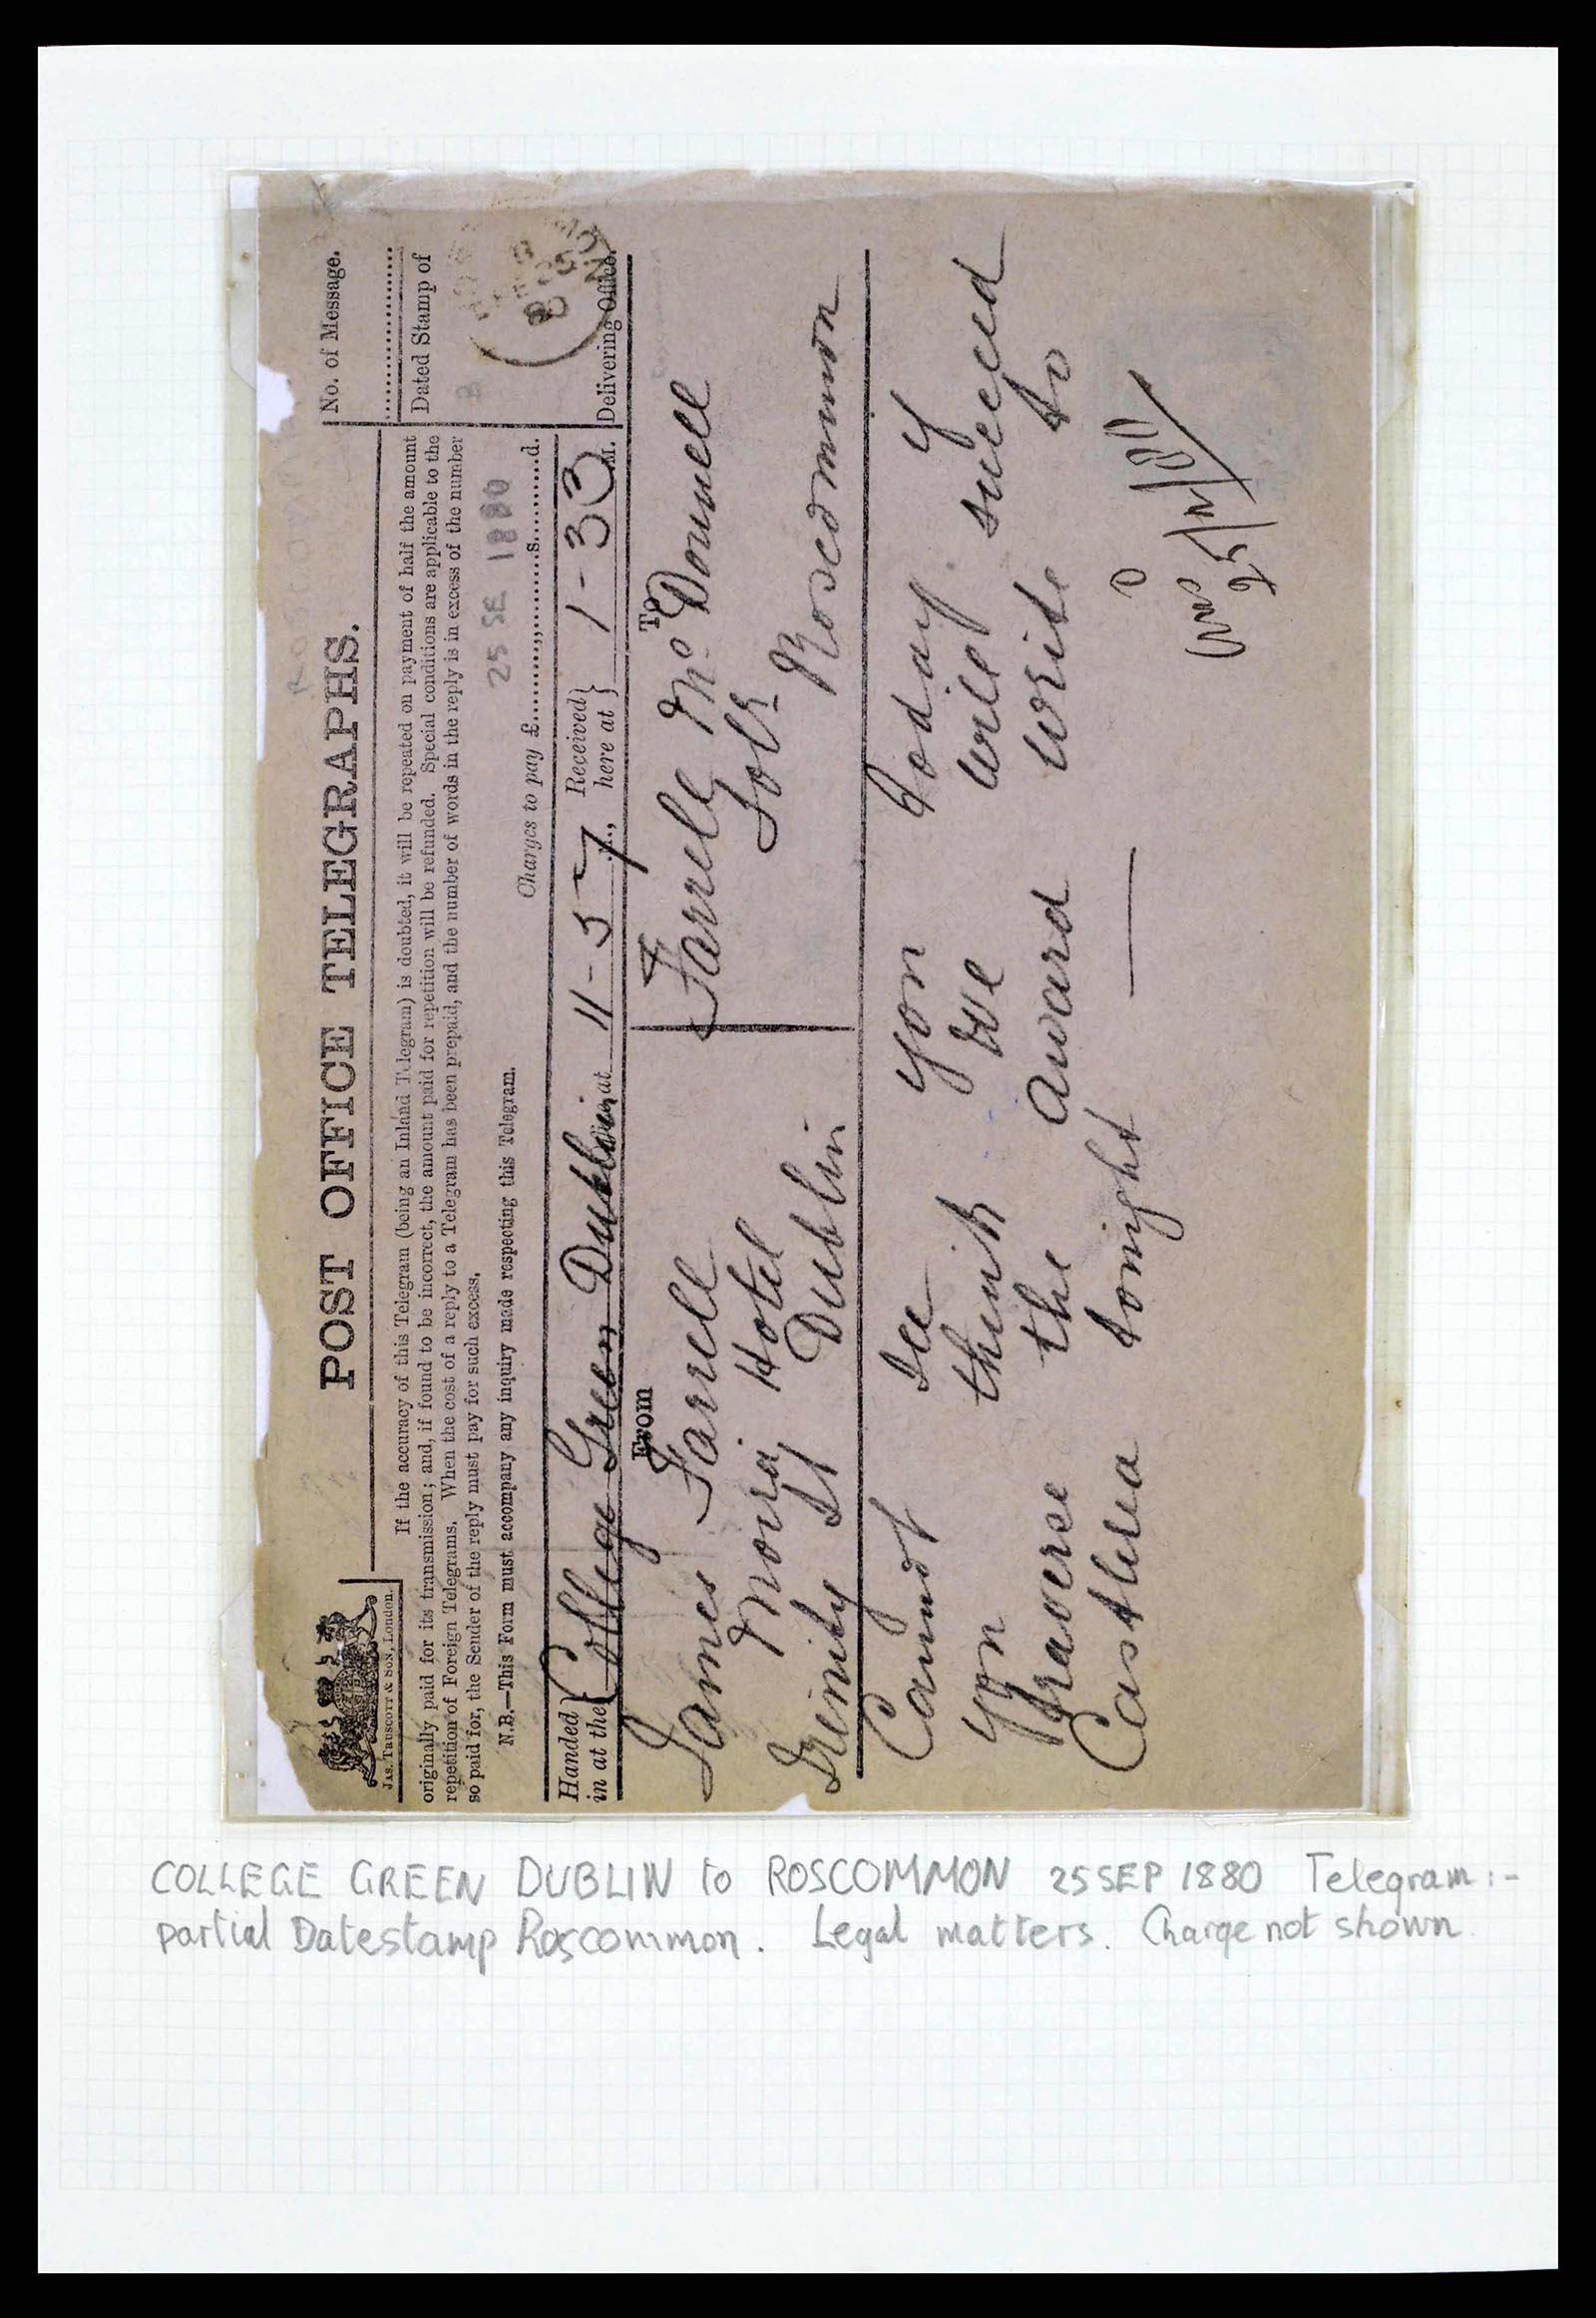 No. of Message.
POST OFFICE TELEGRAPHS.
JAS. TRUSCOTT & SON, London.
Dated Stamp of
If the accuracy of this Telegram (being an Inland Telegram) is doubted, it will be repeated on payment of half the amount
originally paid for its transmission; and, if found to be incorrect, the amount paid for repetition will be refunded. Special conditions are applicable to the
repetition of Foreign Telegrams. When the cost of a reply to a Telegram has been prepaid, and the number of words in the reply is in excess of the number
so paid for, the Sender of the reply must pay for such excess.
N.B.—This Form must accompany any inquiry made respecting this Telegram.
25 SE 1880
Charges to pay £.........,,.........s.........d.
Handed in at the } College Green Dublin at 11-57, Received here at } 1-33 M.
Delivering Office.
From
James Farrell
Moira Hotel
Trinity St Dublin
To
Farrell Mc Donnell
Solr
Roscommon
Cannot see you today if
you think we will succeed
traverse the award write to
Castlerea tonight
25/9/80
COLLEGE GREEN DUBLIN to ROSCOMMON 25 SEP 1880 Telegram:-
partial Datestamp Roscommon. Legal matters. Charge not shown